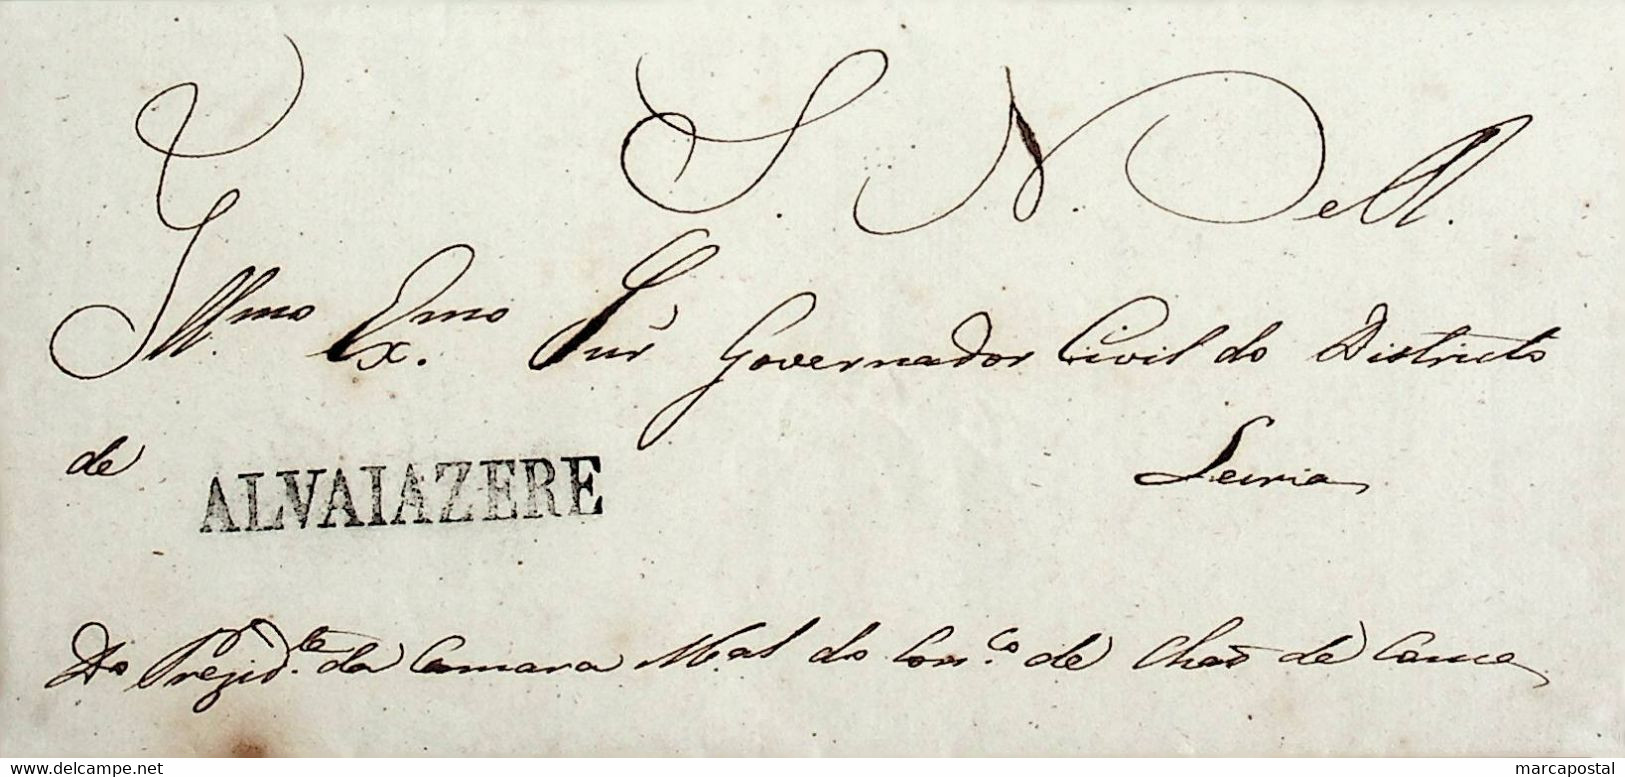 S. N. De M.
Illmo. Exmo. Snr. Governador Civil do Districto
de
Leiria
ALVAIAZERE
Do Prezid.te da Camara M.al do Con.co de Chaõ de Couce
www.delcampe.net
marcapostal